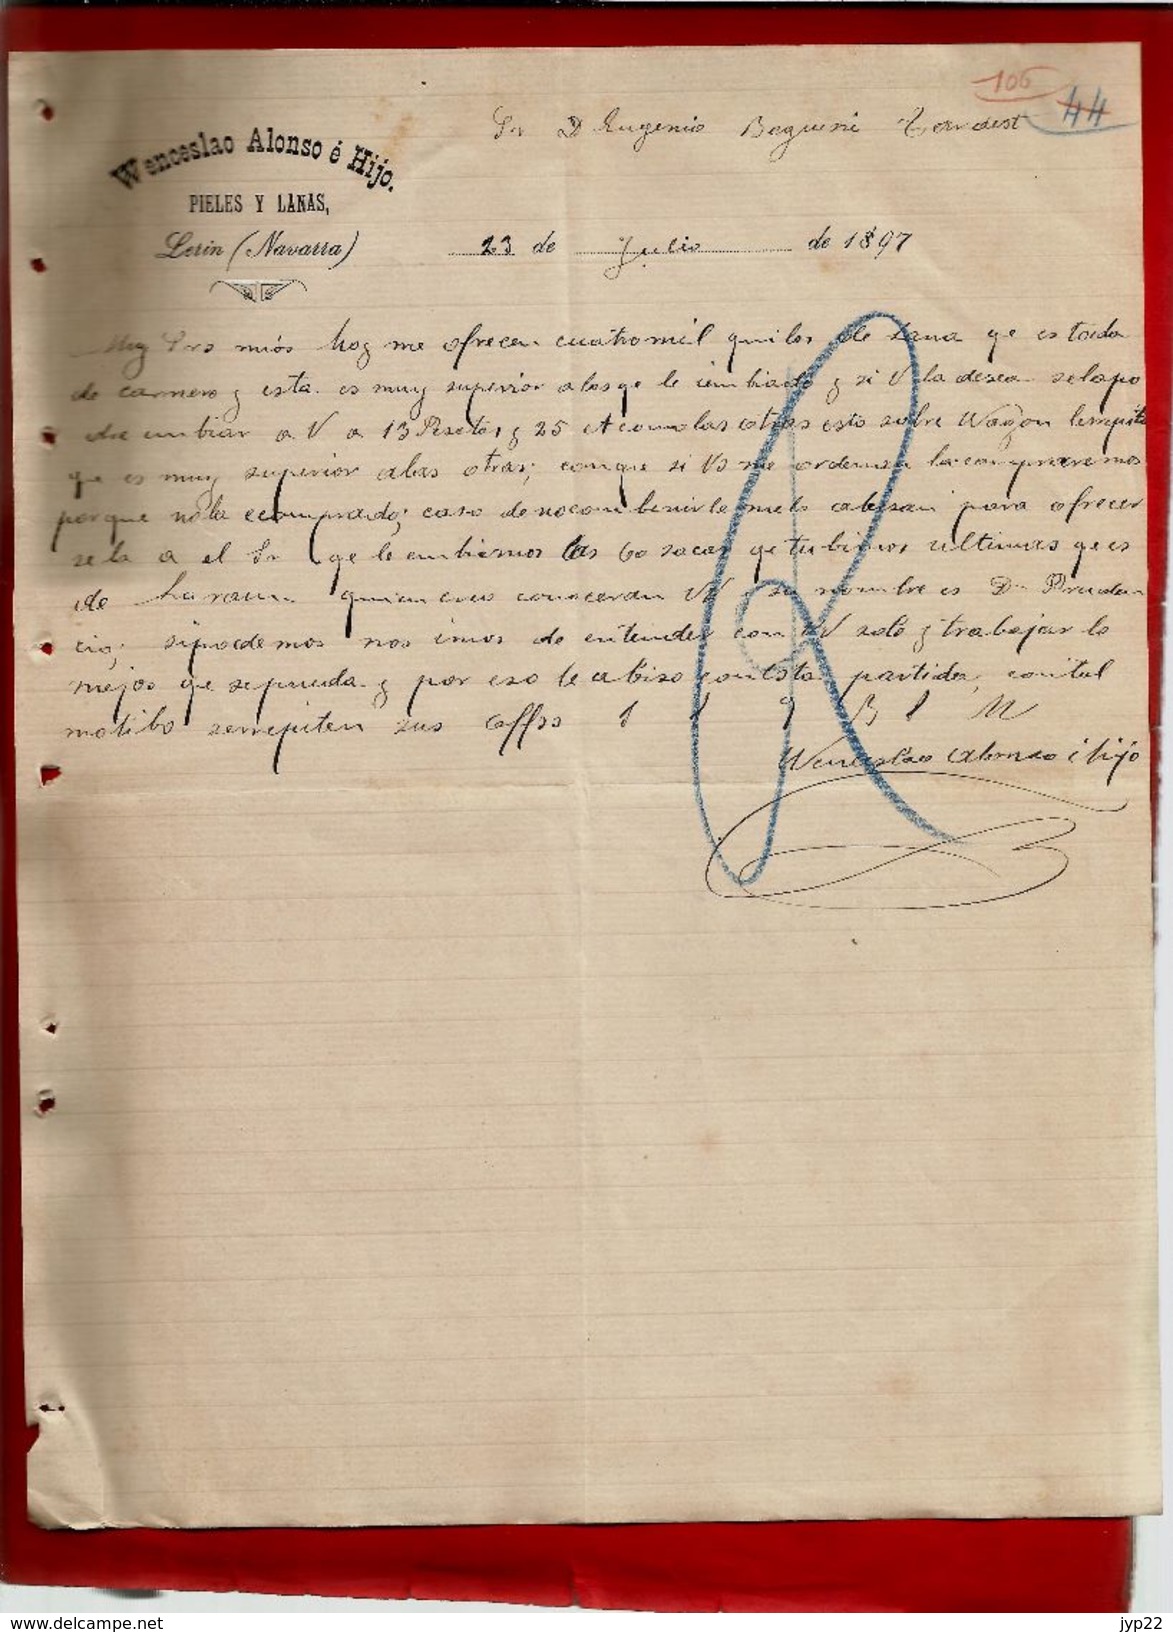 106
44
Sr D Eugenio
Wenceslao Alonso é Hijo.
PIELES Y LANAS,
Lerin (Navarra)
23 de Julio de 1897
Muy Srs miós hoy me ofrecen cuatromil quilos de Lana qe es toida
de carnero y esta es muy superior alasqe le iembiado y si V la desea selapo
dre embiar a V a 13 Pesetas y 25 ct comolas otras esto sobre Wagon lerrepito
qe es muy superior alas otras; conque si Vs me ordenan lacompraremos
porque nola ecomprado; caso denocombenirle melo abisan para ofrecer
sela a el Sr qe le embiamos las 60 sacas qe tubimos ultimas qe es
de quien creo conoceran VV su nombre es Dn Pruden
cio; sipodemos nos imos de entender con V solo y trabajar lo
mejor qe sepueda y por eso le abiso conesta partida, contal
motibo serrepiten sus affso S S q B S M
Wenceslao Alonso é hijo
delcampe.net
jyp22